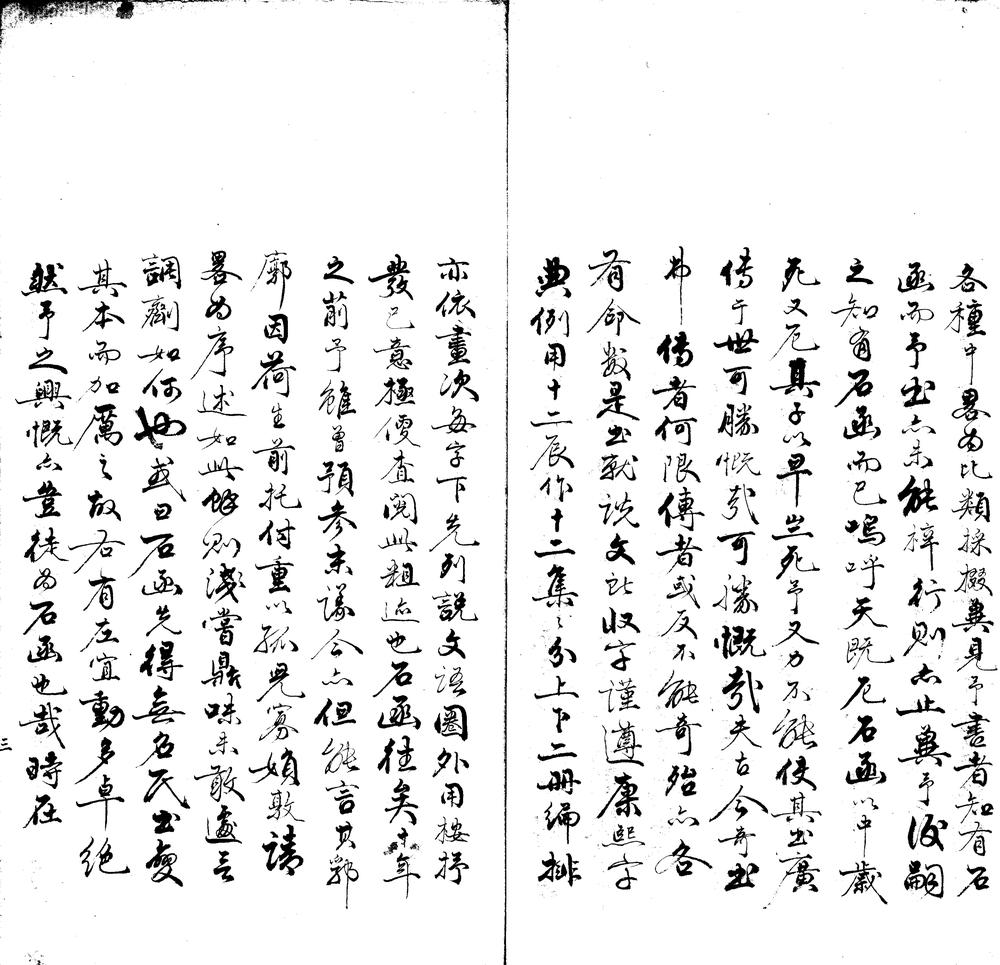 各種中畧為比類採掇冀見予書者知有石
函而予出亦未能梓行則亦止冀予後嗣
之知有石函而已嗚呼天既厄石函以中歲
死又厄其子以早世死予又力不能使其書廣
傳于世可勝慨哉可勝慨哉夫古今奇書
弗傳者何限傳者或反不能奇殆亦各
有命數是書就說文所收字謹遵康熙字
典例用十二辰作十二集集分上下二冊編排
亦依畫次每字下先列説文語圈外用按抒
發己意極便查閱此粗迹也石函往矣年
之前予雖曾預參末議今亦但能言其鄂
廓因荷生前托付重以孤兒寡婦敦請
畧為序述如此餘則淺嘗鼎味未敢遽云
調劑如何也或曰石函先得無名氏書變
其本而加厲之故右有左宜動多卓絶
然予之興慨亦豈徒為石函也哉時在
三